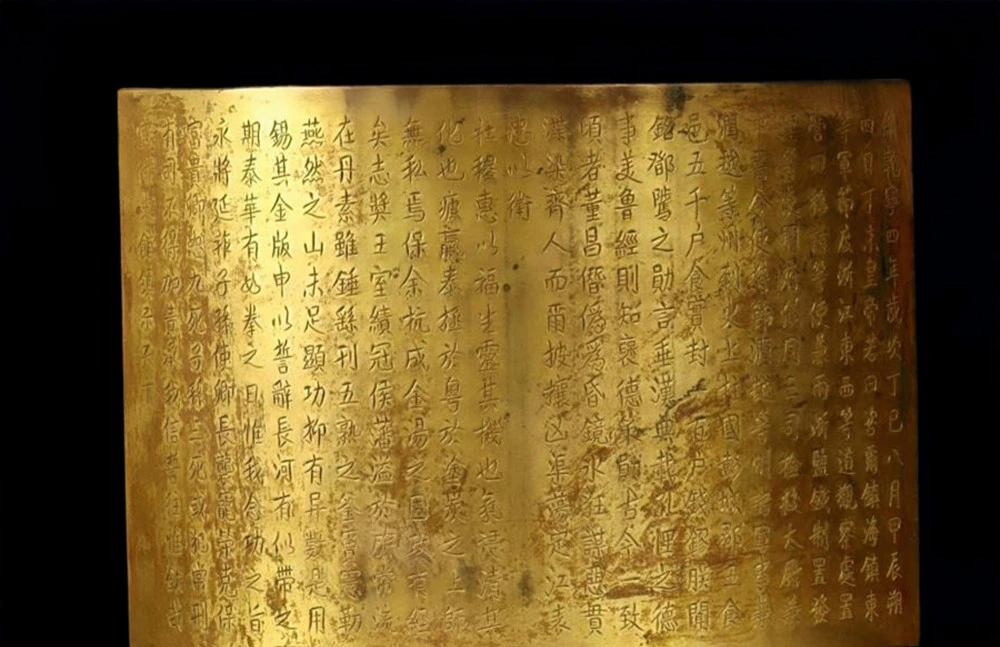 維乾寧四年歲次丁巳八月甲辰朔
四日丁未皇帝若曰咨爾鎮海鎮東
等軍節度浙江東西等道觀察處置
營田招討等使兼兩浙鹽鐵制置發
開府儀同三司檢校太尉兼
中書令使持節潤越等州諸軍事兼
潤越等州刺史上柱國彭城郡王食
邑五千戶食實封壹百戶錢鏐朕聞
銘鄧騭之勛言垂漢典載孔悝之德
事美魯經則知褒德策勛古今一致
頃者董昌僭偽為昏鏡水狂謀惡貫
渫染齊人而爾披攘凶渠蕩定江表
忠以衛
社稷惠以福生靈其機也氛祲清其
化也疲羸泰拯於粵於塗炭之上師
無私焉保余杭成金湯之固政有經
矣志獎王室績冠侯藩溢於旂常流
在丹素雖鍾繇刊五熟之釜竇憲勒
燕然之山未足顯功抑有异數是用
錫其金版申以誓辭長河有似帶之
期泰華有如拳之日惟我念功之旨
永將延祚子孫使卿長襲寵榮克保
富貴卿恕九死子孫三死或犯常刑
有司不得加責承我信誓往惟欽哉
宜付史館頒示天下